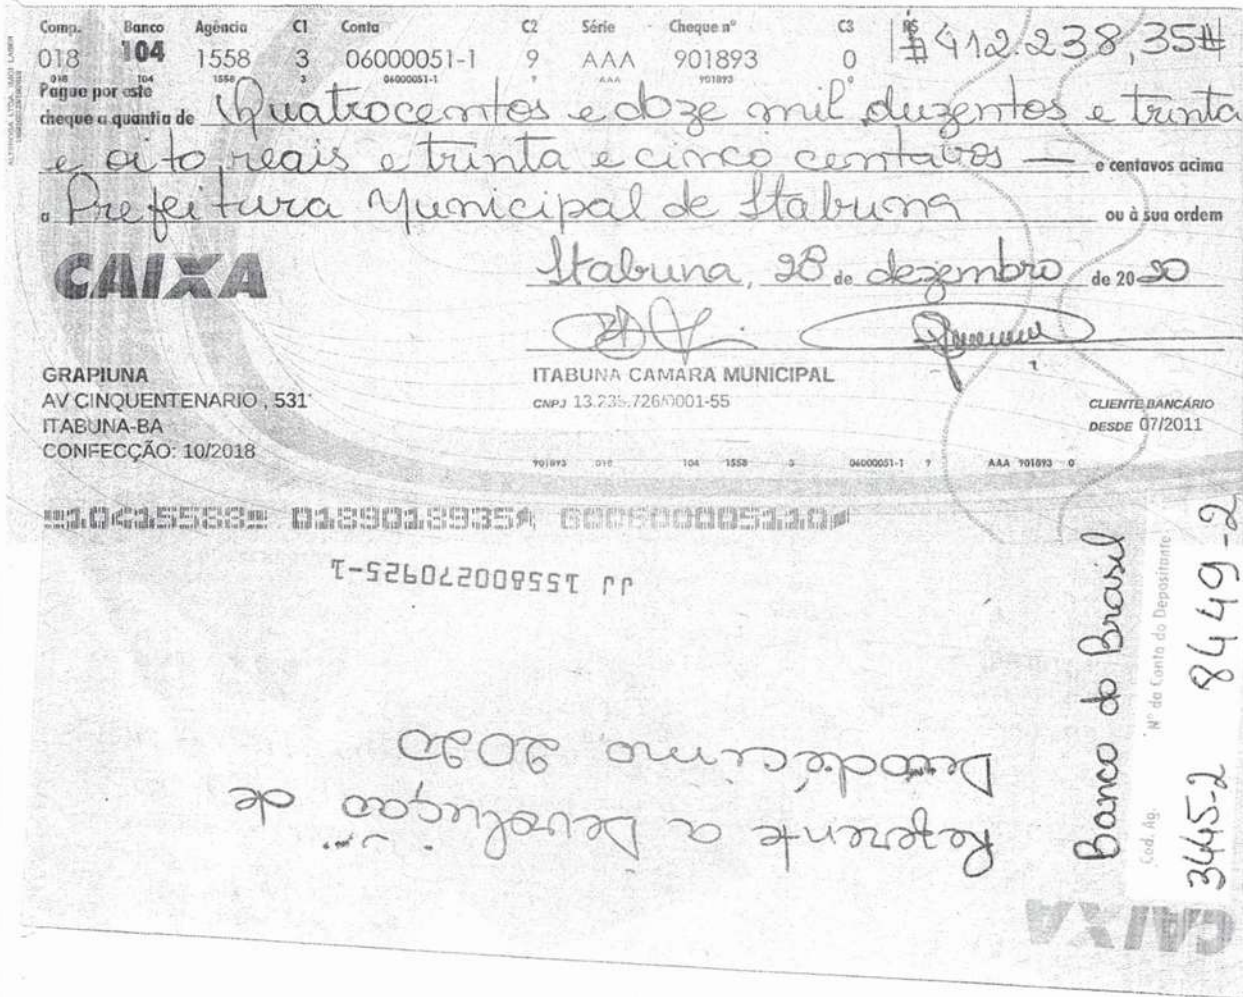 Comp. Banco Agência C1 Conta C2 Série Cheque nº C3 R$
018 104 1558 3 06000051-1 9 AAA 901893 0 #412.238,35#
018 104 1558 3 06000051-1 9 AAA 901893 0
Pague por este
cheque a quantia de Quatrocentos e doze mil duzentos e trinta
e oito reais e trinta e cinco centavos — e centavos acima
a Prefeitura Municipal de Itabuna ou à sua ordem
Itabuna, 28 de dezembro de 2020
CAIXA
GRAPIUNA
AV CINQUENTENARIO , 531
ITABUNA-BA
CONFECÇÃO: 10/2018
ITABUNA CAMARA MUNICIPAL
CNPJ 13.235.726/0001-55
CLIENTE BANCÁRIO
DESDE 07/2011
901893 018 104 1558 3 06000051-1 9 AAA 901893 0
JJ 155800270925-1
Referente a Devolução de
Duodécimo 2020
Banco do Brasil
Cod. Ag. Nº da Conta do Depositante
3445-2 8449-2
CAIXA